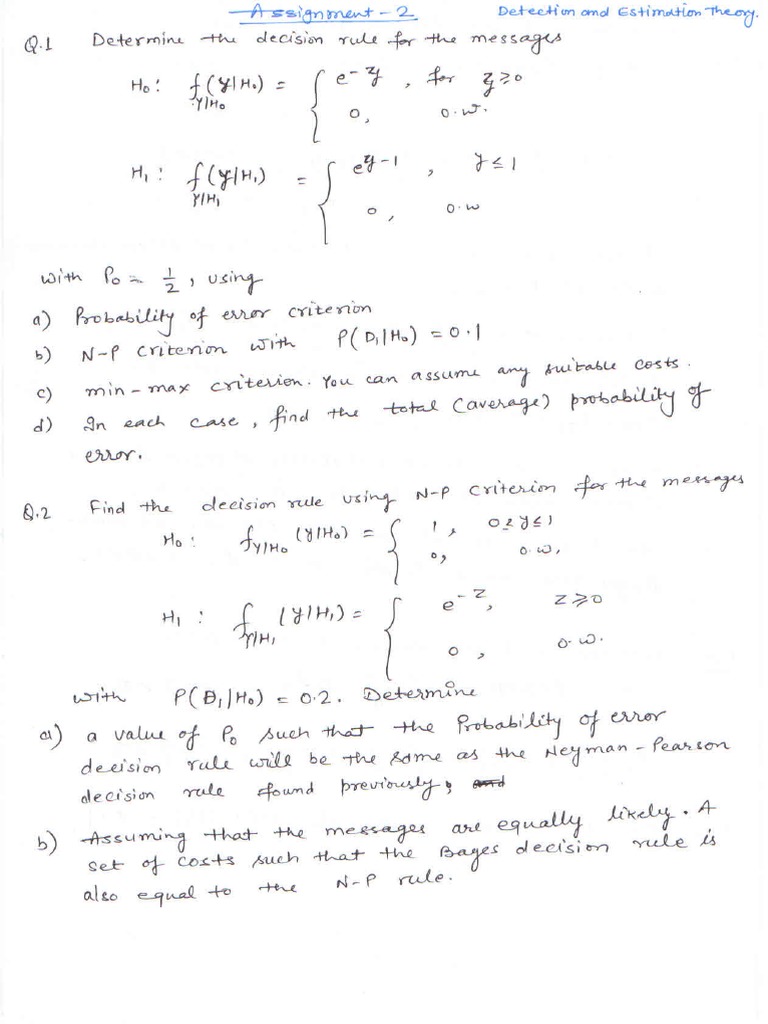 Assignment - 2
Detection and Estimation Theory.
Q.1 Determine the decision rule for the messages
H0: f Y|H0 (y|H0) = { e^-y, for y ≥ 0
0, o.w.
H1: f Y|H1 (y|H1) = { e^y-1, y ≤ 1
0, o.w
with P0 = 1/2, using
a) Probability of error criterion
b) N-P criterion with P(D1|H0) = 0.1
c) min-max criterion. You can assume any suitable costs.
d) In each case, find the total (average) probability of
error.
Q.2 Find the decision rule using N-P criterion for the messages
H0: f Y|H0 (y|H0) = { 1, 0 ≤ y ≤ 1
0, o.w.
H1: f Y|H1 (y|H1) = { e^-z, z ≥ 0
0, o.w.
with P(D1|H0) = 0.2. Determine
a) a value of P0 such that the Probability of error
decision rule will be the same as the Neyman-Pearson
decision rule found previously; and
b) Assuming that the messages are equally likely. A
set of costs such that the Bages decision rule is
also equal to the N-P rule.